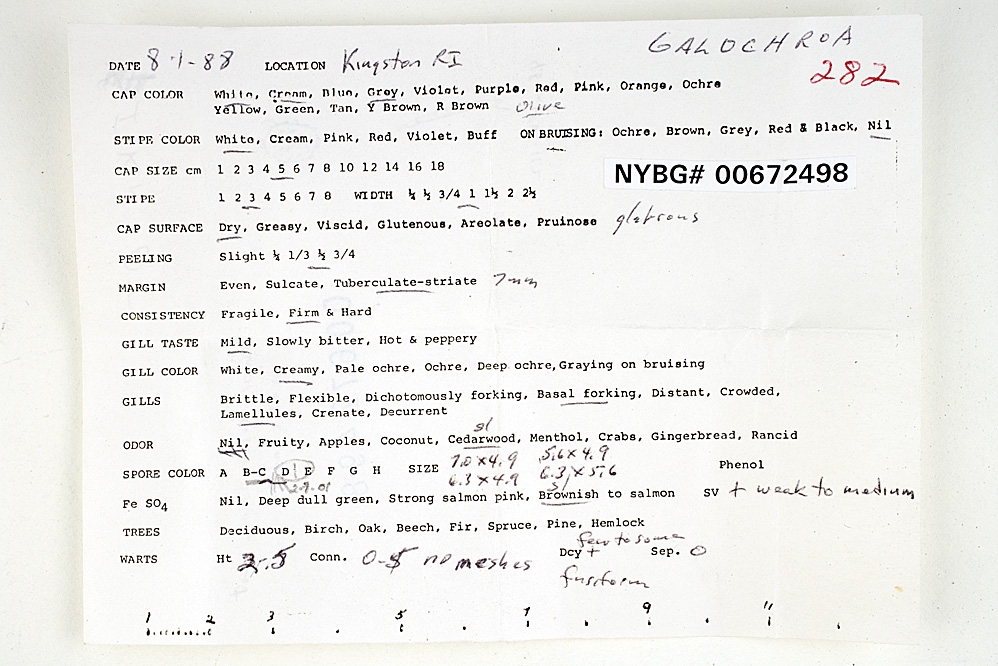 GALOCHROA
DATE 8-1-88 LOCATION Kingston RI
282
CAP COLOR White, Cream, Blue, Grey, Violet, Purple, Red, Pink, Orange, Ochre
Yellow, Green, Tan, Y Brown, R Brown Olive
STIPE COLOR White, Cream, Pink, Red, Violet, Buff ON BRUISING: Ochre, Brown, Grey, Red & Black, Nil
CAP SIZE cm 1 2 3 4 5 6 7 8 10 12 14 16 18
NYBG# 00672498
STIPE 1 2 3 4 5 6 7 8 WIDTH ¼ ½ 3/4 1 1½ 2 2½
CAP SURFACE Dry, Greasy, Viscid, Glutenous, Areolate, Pruinose glabrous
PEELING Slight ¼ 1/3 ½ 3/4
MARGIN Even, Sulcate, Tuberculate-striate 7mm
CONSISTENCY Fragile, Firm & Hard
GILL TASTE Mild, Slowly bitter, Hot & peppery
GILL COLOR White, Creamy, Pale ochre, Ochre, Deep ochre, Graying on bruising
GILLS Brittle, Flexible, Dichotomously forking, Basal forking, Distant, Crowded,
Lamellules, Crenate, Decurrent
sl
ODOR Nil, Fruity, Apples, Coconut, Cedarwood, Menthol, Crabs, Gingerbread, Rancid
7.0 x 4.9 5.6 x 4.9
SPORE COLOR A B-C D E F G H SIZE 6.3 x 4.9 6.3 x 5.6
Phenol
2-9-01
sl
Fe SO4 Nil, Deep dull green, Strong salmon pink, Brownish to salmon SV + weak to medium
TREES Deciduous, Birch, Oak, Beech, Fir, Spruce, Pine, Hemlock
few to some
WARTS Ht Conn. 0-5 no meshes Dcy + Sep. 0
fusiform
1 2 3 5 7 9 11